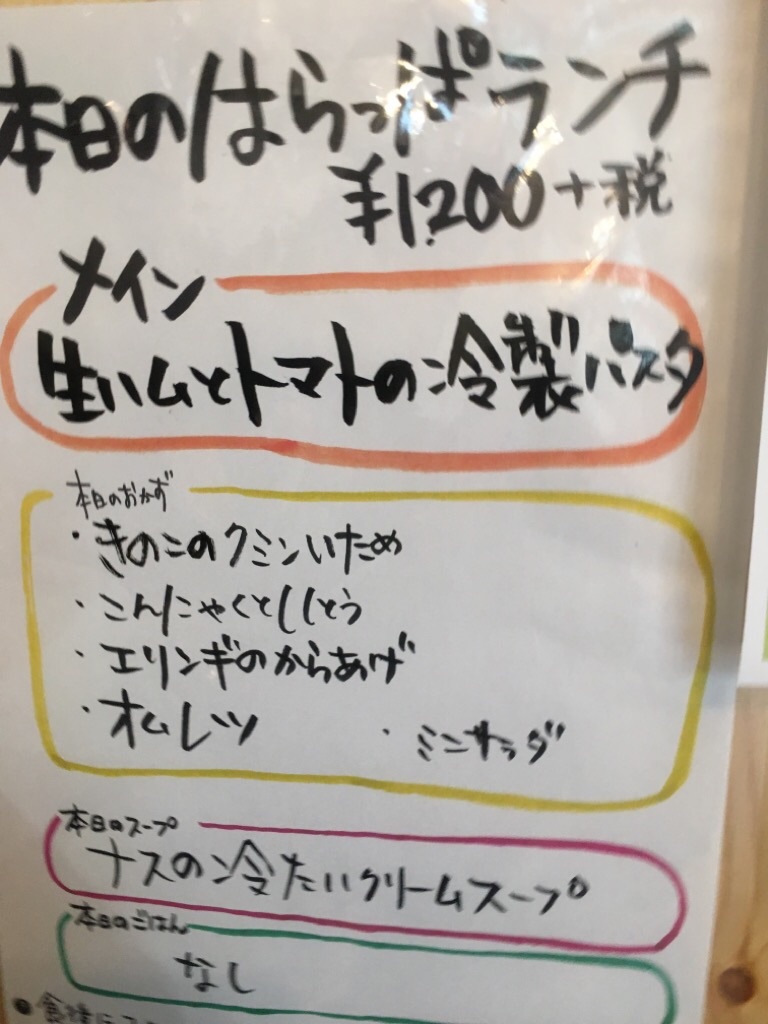 本日のはらっぱランチ
¥1200+税
メイン
生ハムとトマトの冷製パスタ
本日のおかず
・きのこのクミンいため
・こんにゃくとししとう
・エリンギのからあげ
・オムレツ ・ミニサラダ
本日のスープ
ナスの冷たいクリームスープ
本日のごはん
なし